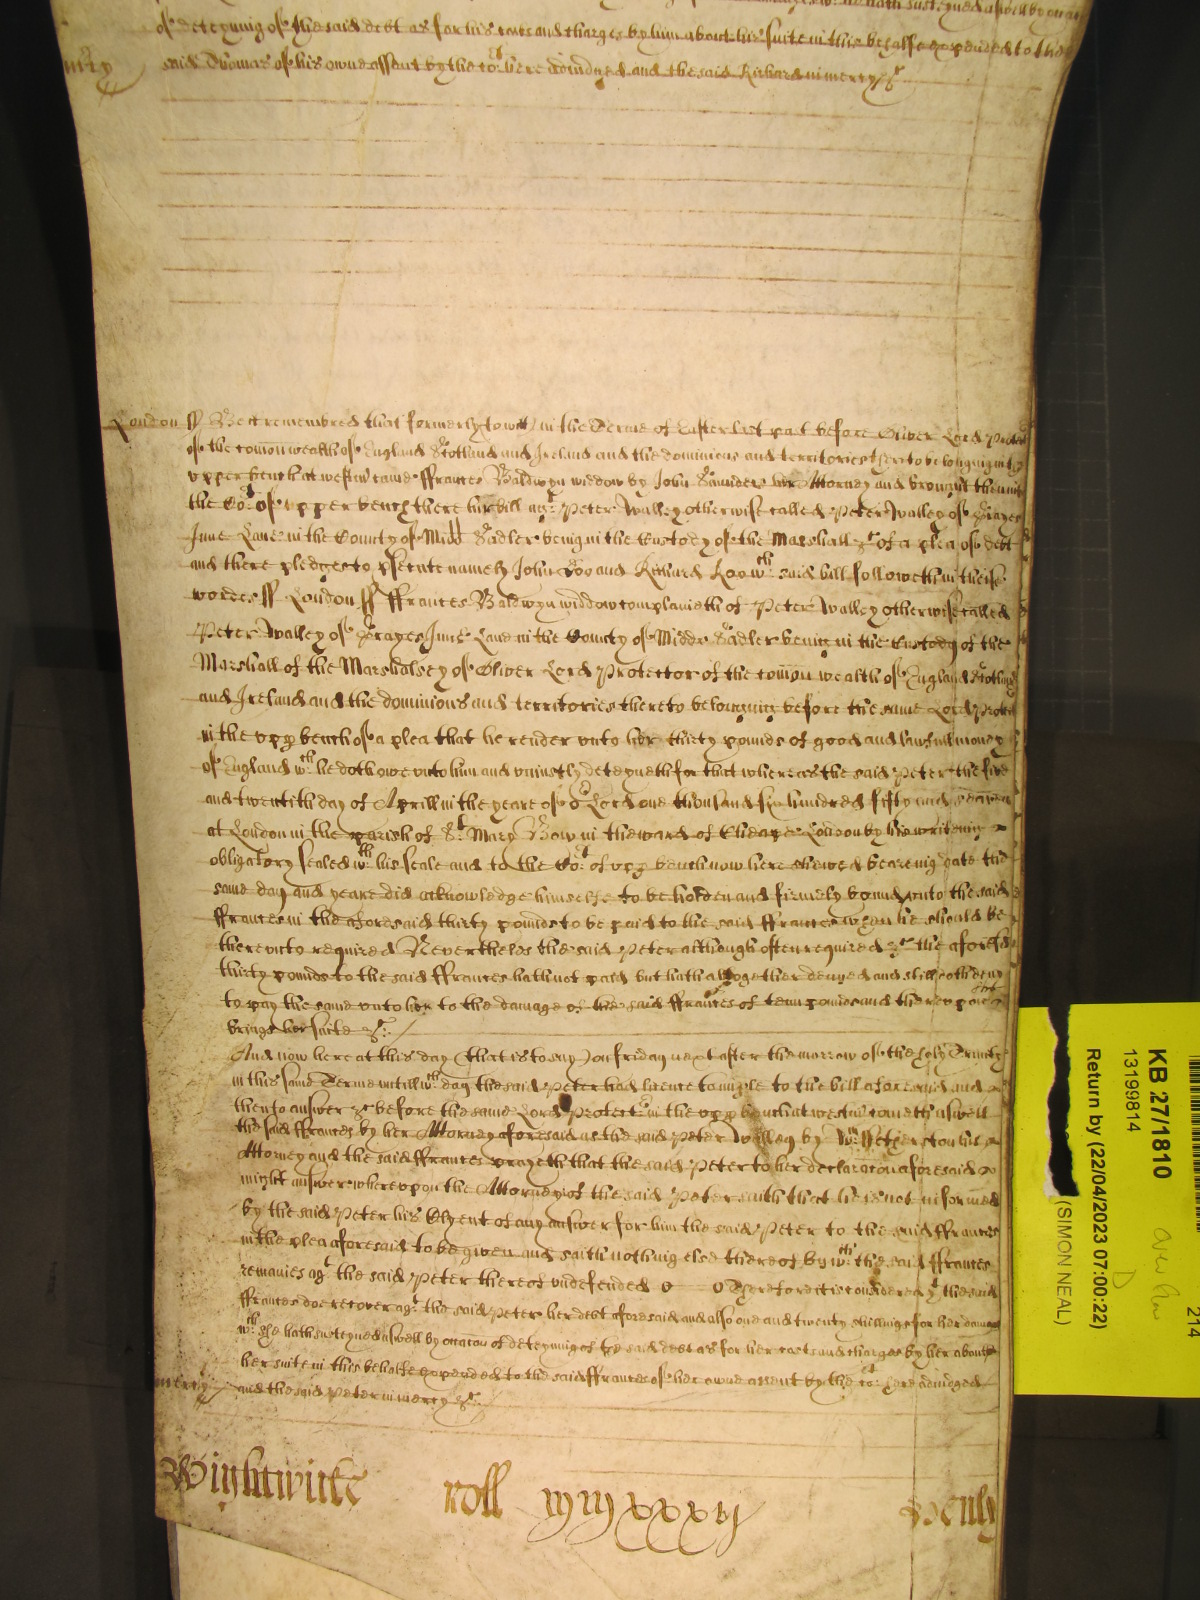 of deteyning of the said debt as for his costs and charges by him about his suite in this behalfe expended to the
said Thomas of his owne assent by the Cort here adiudged and the said Richard in mercy &c
mcy
London ss Be it remembred that formerly to witt in the Terme of Easter last past before Oliver Lord Protector
of the comon wealth of England Scotland and Ireland and the dominions and territories thereto belonging in the
upper bench at westmr came ffrances Baldwyn widdow by John Saunders her Attorney and brought then into
the Cort of upper bench there her bill agt Peter Walley otherwise called Peter Walley of Grayes
Inne Lane in the County of Midd Sadler being in the Custody of the Marshall &c of a plea of debt
and there pledges to psecute namely John Doo and Richard Roo wch said bill followeth in theise
wordes ss London ss ffrances Baldwyn widdow complaineth of Peter Walley otherwise called
Peter Walley of Grayes Inne Lane in the County of Middx Sadler being in the Custody of the
Marshall of the Marshalsey of Oliver Lord Protector of the comon wealth of England Scotland
and Ireland and the dominions and territories thereto belonging before the same Lord Protector
in the upp bench of a plea that he render unto her thirty pounds of good and lawfull money
of England wch he doth owe unto him and uniustly deteyneth for that whereas the said Peter the five
and twentith day of Aprill in the yeare of or Lord one thousand six hundred fifty and seaven
at London in the parish of St Mary Bow in the ward of Cheape London by his writeing
obligatory sealed wth his seale and to the Cort of upp bench now here shewed beareing date the
same day and yeare did acknowledge himselfe to be holden and firmely bound unto the said
ffrances in the aforesaid thirty pounds to be paid to the said ffrances when he should be
thereunto required Neverthelesse the said Peter although often required &c the aforesd
thirty pounds to the said ffrances hath not paid but hath altogether denyed and still doth deny
to pay the same unto her to the damage of the said ffrances of tenn pounds and thereupon shee
brings her suite &c
And now here at this day (that is to say) on friday next after the morrow of the holy Trinity
in this same Terme untill wch day the said Peter had licence to imple to the bill aforesaid and
then to answer &c before the same Lord Protector in the upp bench at westmr cometh aswell
the said ffrances by her Attorney aforesaid as the said Peter Walley by Wm his
Attorney and the said ffrances prayeth that the said Peter to her declaracon aforesaid
might answer whereupon the Attorney of the said Peter saith that he is not informed
by the said Peter his Clyent of any answer for him the said Peter to the said ffrances
in the plea aforesaid to be given and saith nothing else thereof by wch the said ffrances
remaines agt the said Peter thereof undefended Therefore it is considered yt the said
ffrances doe recover agt the said Peter her debt aforesaid and also one and twenty shillings for her damages
wch she hath susteyned aswell by occacon of deteyning of the said debt as for her costs and charges by her about
her suite in this behalfe expended to the said ffrances of her owne assent by the Cort here adiudged
mercy and the said Peter in mercy &c
Wightwicke roll Henly
KB 27/1810
13199814
Return by (22/04/2023 07:00:22)
(SIMON NEAL)
D
214